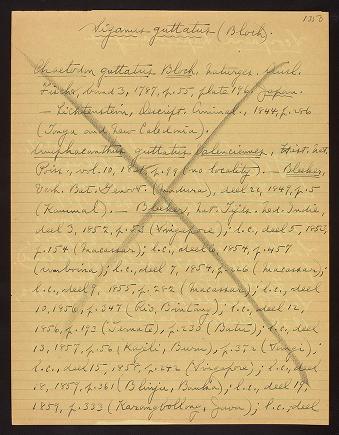 1350
Siganus guttatus (Bloch).
Chaetodon guttatus Bloch, Naturges. Ausl.
Fische, band 3, 1787, p. 55, plate 196 Japan.
— Lichtenstein, Descript. Animal., 1844, p. 286
(Tonga and New Caledonia).
Amphacanthus guttatus Valenciennes, Hist. Nat.
Poiss., vol. 10, 1835, p. 99 (no locality). — Bleeker,
Verh. Bat. Genoot. (Madura), deel 22, 1849, p. 5
(Kammal). — Bleeker, Nat. Tijds. Ned. Indië,
deel 3, 1852, p. 55 (Singapore); l.c., deel 5, 1853,
p. 154 (Macassar); l.c., deel 6 1854, p. 457
l.c., deel 7, 1854, p. 226 (Macassar);
l.c., deel 9, 1855, p. 282 (Macassar); l.c., deel
10, 1856, p. 347 (Rio, Bintang); l.c., deel 12,
1856, p. 193 (Ternate), p. 233 (Batu); l.c., deel
13, 1857, p. 56 (Kajili, Buru), p. 372
l.c., deel 15, 1858, p. 242 (Singapore); l.c., deel
18, 1859, p. 361 (Blinju, Banka); l.c., deel 19,
1859, p. 333 (Karangbollong, Java); l.c., deel